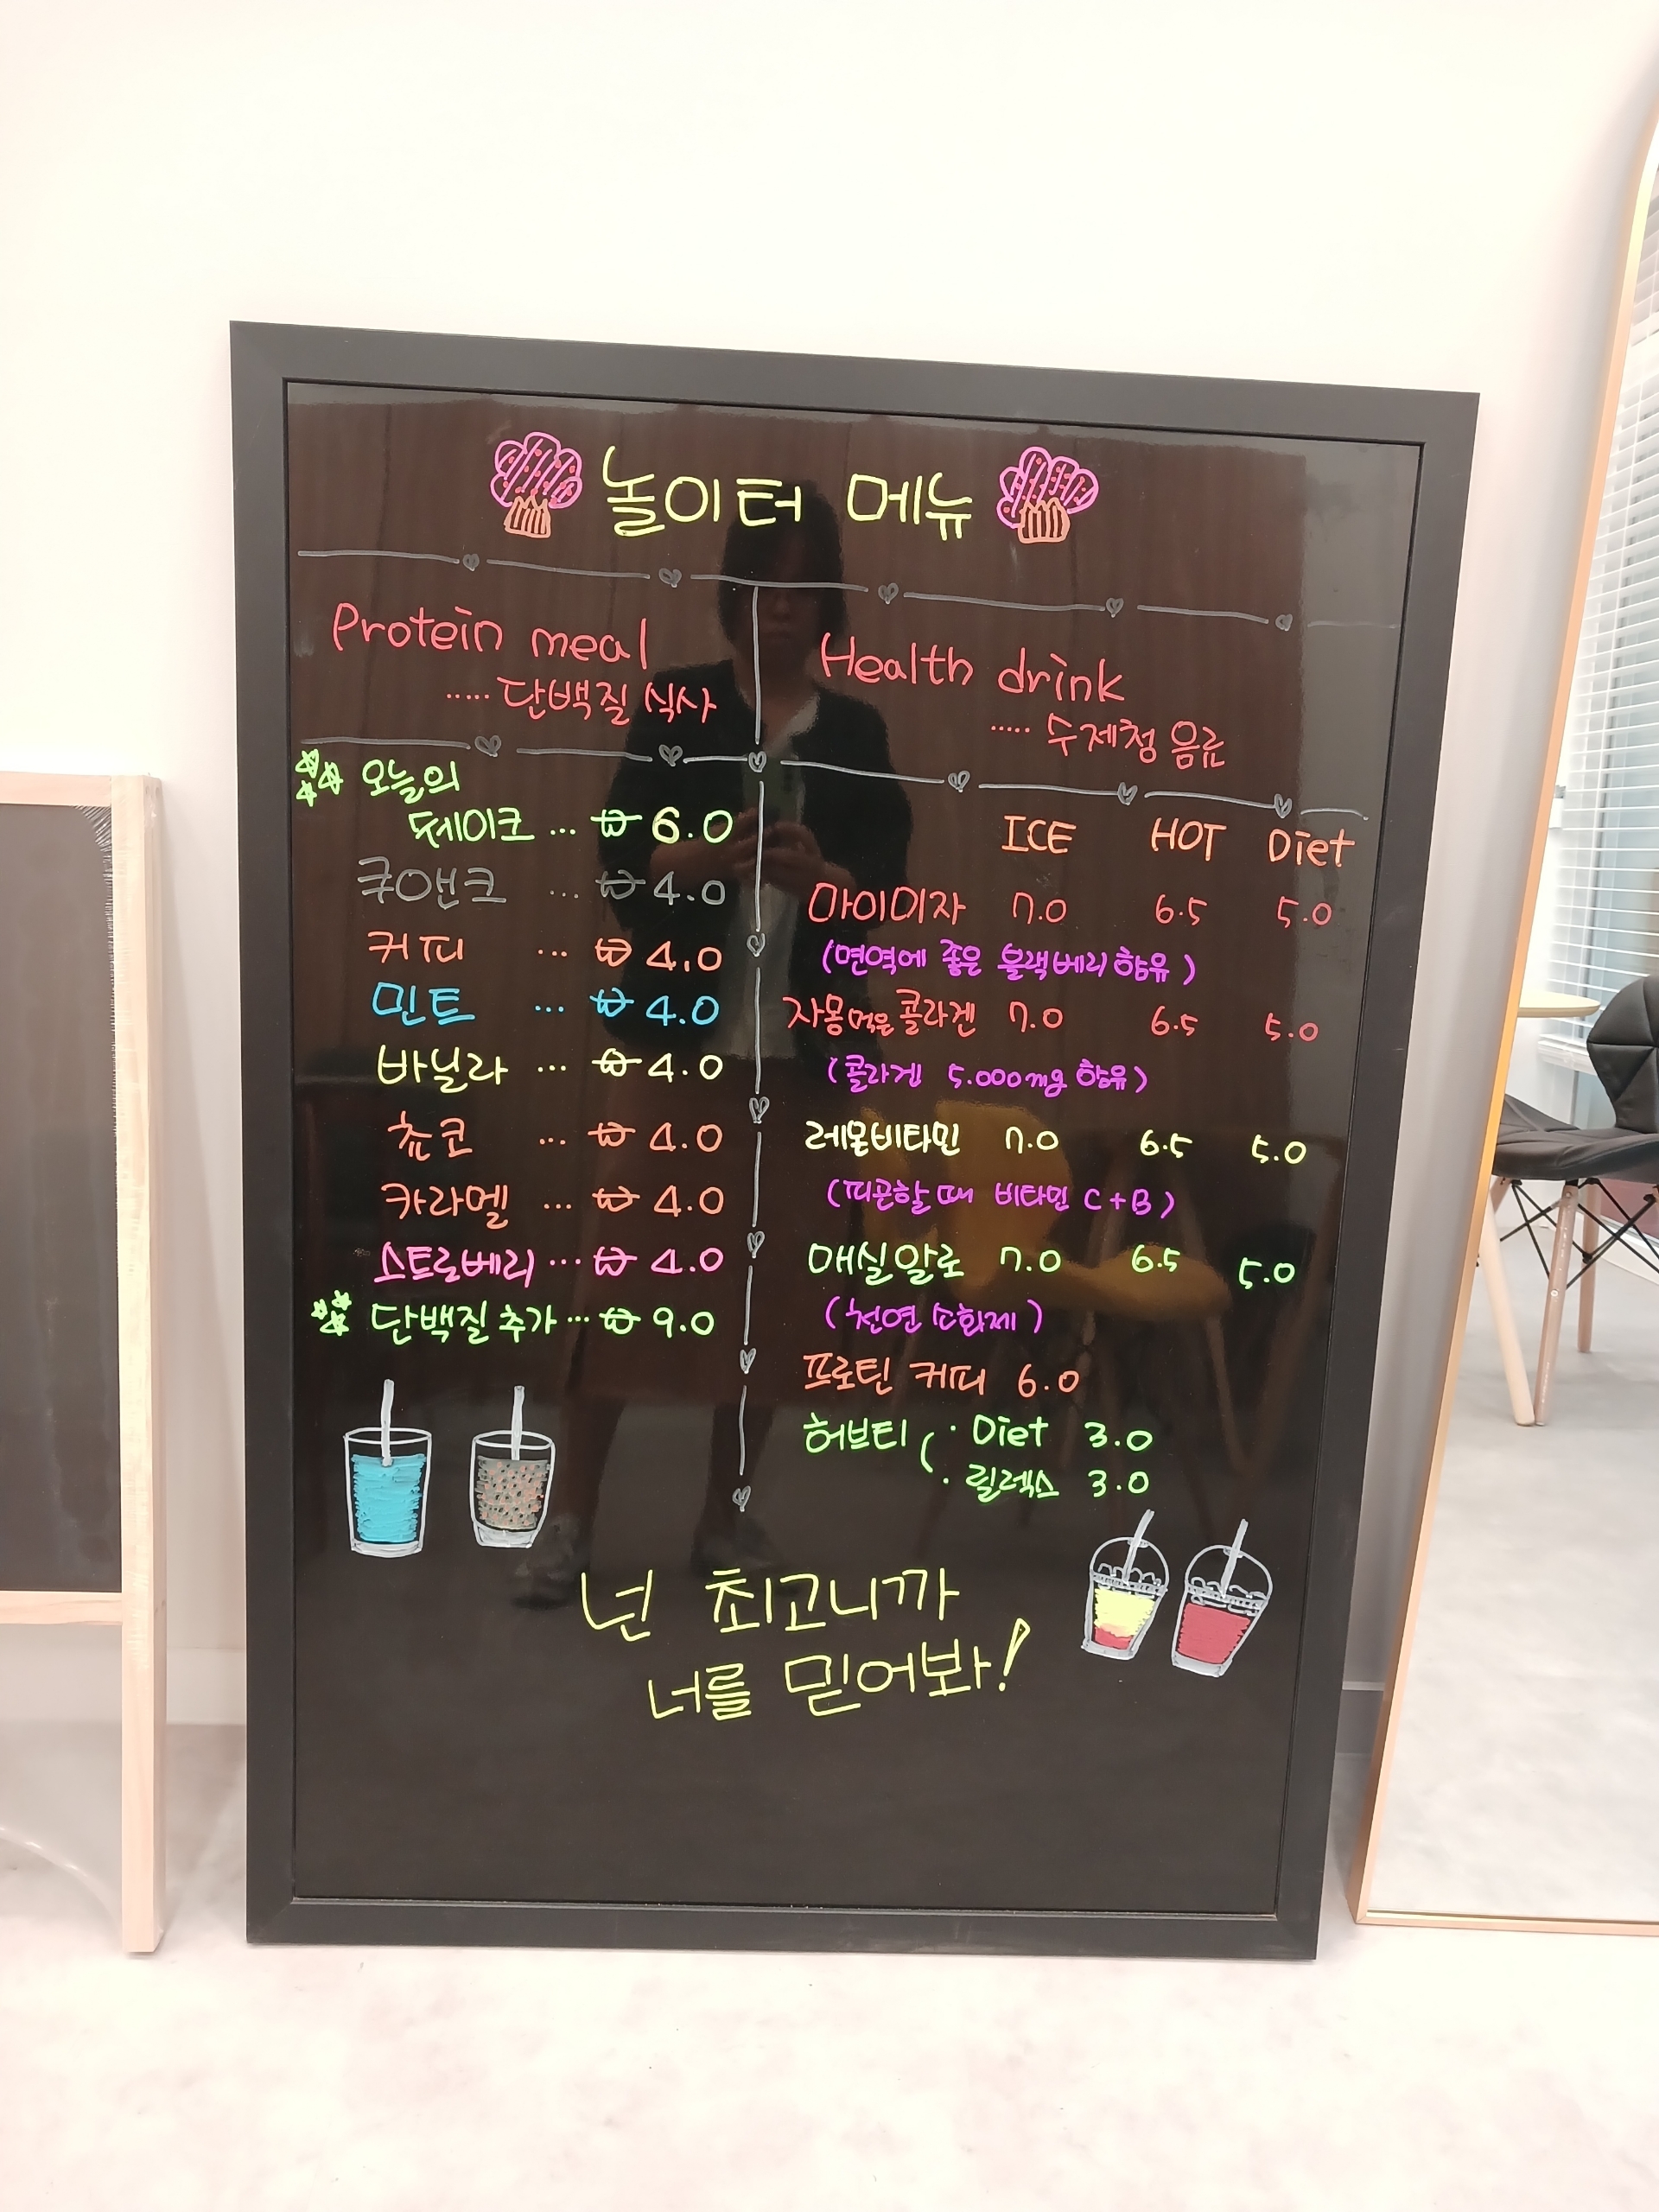 놀이터 메뉴
Protein meal
..... 단백질 식사
오늘의
쉐이크 ... ₩ 6.0
쿠앤크 ... ₩ 4.0
커피 ... ₩ 4.0
민트 ... ₩ 4.0
바닐라 ... ₩ 4.0
쵸코 ... ₩ 4.0
카라멜 ... ₩ 4.0
스트로베리 ... ₩ 4.0
단백질 추가 ... ₩ 9.0
Health drink
..... 수제청 음료
ICE HOT Diet
마이미자 7.0 6.5 5.0
(면역에 좋은 블랙베리 함유)
자몽먹은 콜라겐 7.0 6.5 5.0
(콜라겐 5.000mg 함유)
레몬비타민 7.0 6.5 5.0
(피곤할 때 비타민 C+B)
매실알로 7.0 6.5 5.0
(천연 소화제)
프로틴 커피 6.0
허브티 ( · Diet 3.0
· 릴렉스 3.0
넌 최고니까
너를 믿어봐!